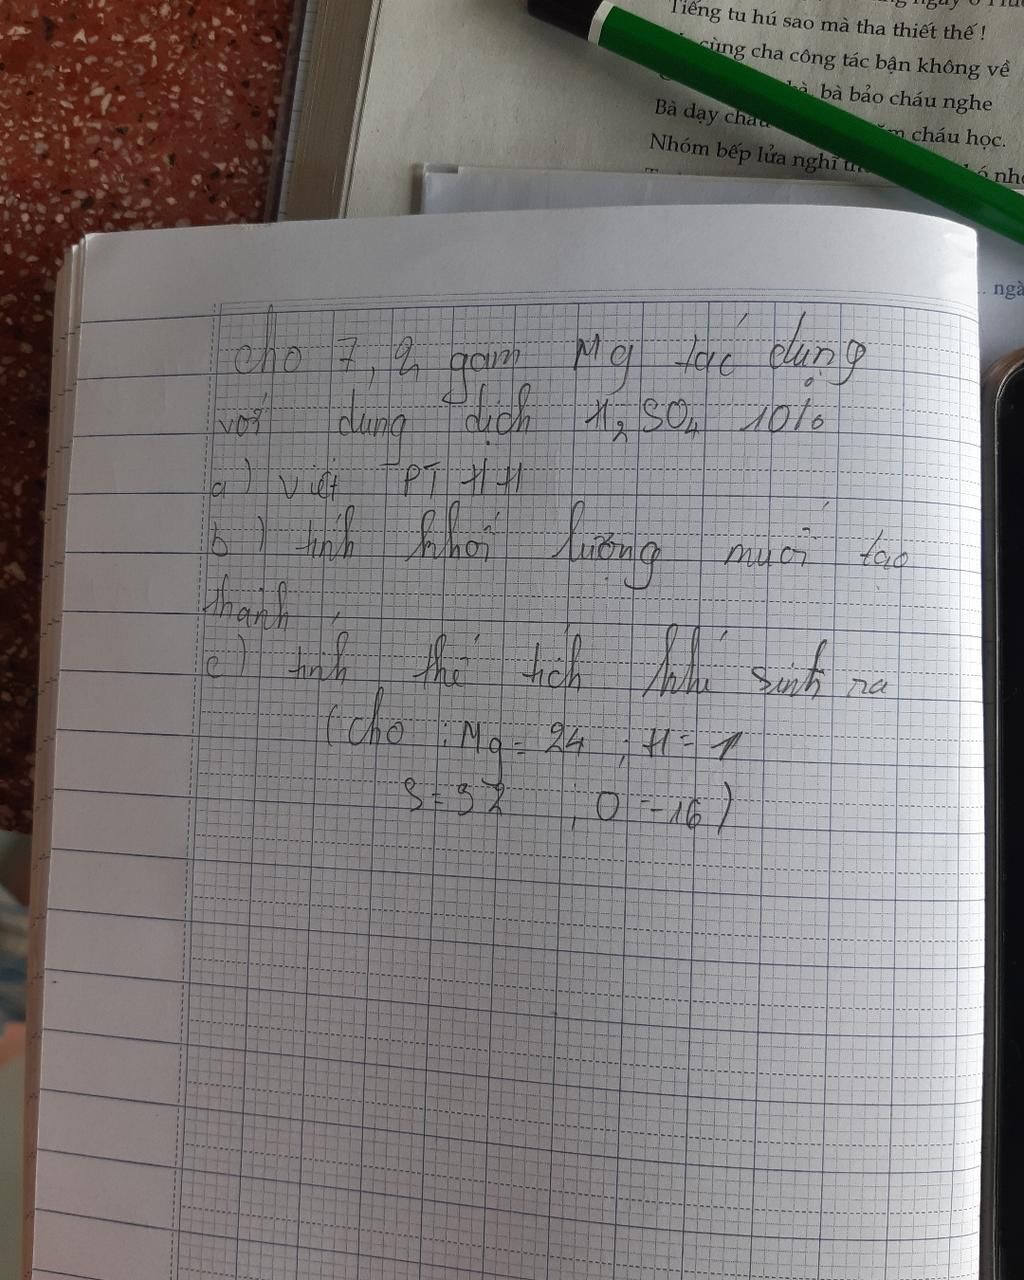 Tiếng tu hú sao mà tha thiết thế !
cùng cha công tác bận không về
bà bảo cháu nghe
Bà dạy cháu cháu học.
Nhóm bếp lửa nghĩ
ngà
Cho 7,2 gam Mg tác dụng
với dung dịch H2SO4 10%
a) viết PTHH
b) tính khối lượng muối tạo
thành
c) tính thể tích khí sinh ra
(cho : Mg = 24 ; H = 1
S = 32 ; O = 16)